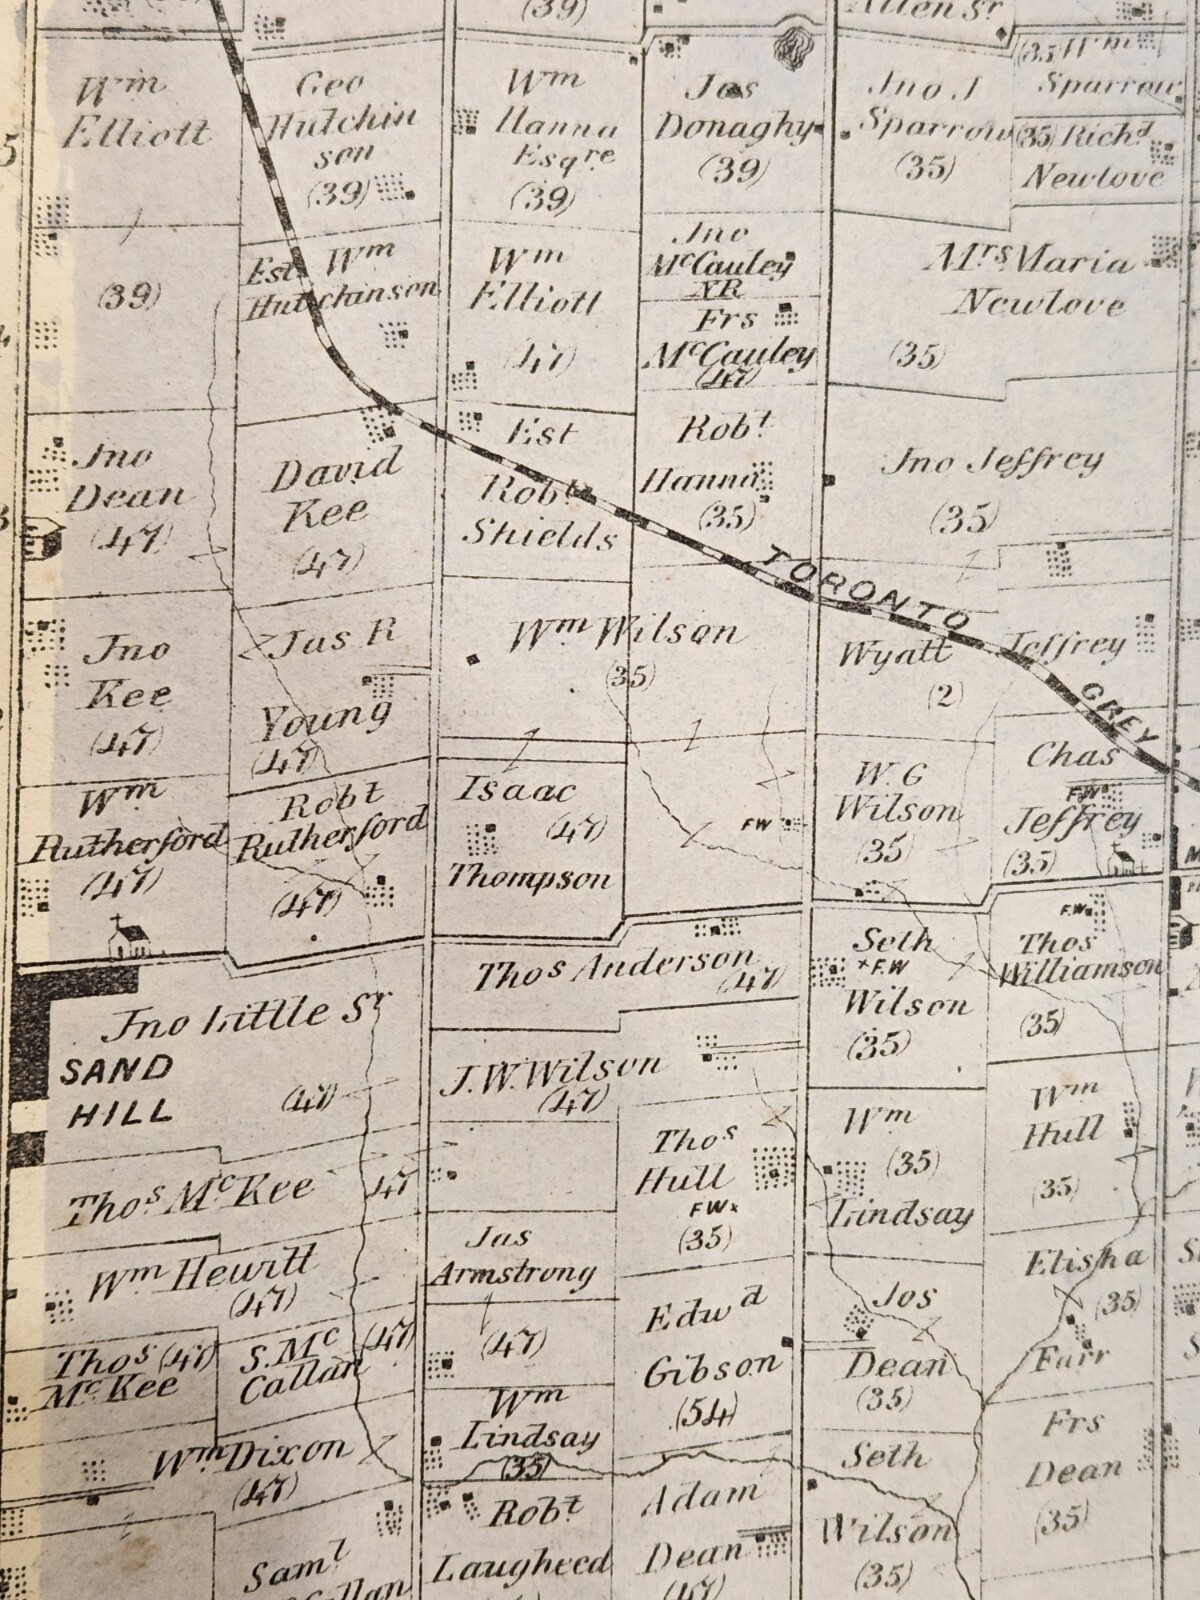 (39)
Allen Sr
Wm
Elliott
Geo
Hutchin
son
(39)
Wm
Hanna
Esqre
(39)
Jos
Donaghy
(39)
Jno. J
Sparrow
(35)
(35) Wm
Sparrow
(35) Richd
Newlove
5
(39)
Est Wm
Hutchinson
Wm
Elliott
(47)
Jno
McCauley
NR
Frs
McCauley
(47)
Mrs Maria
Newlove
(35)
Jno
Dean
(47)
David
Kee
(47)
Est
Robt
Shields
Robt
Hanna
(35)
Jno Jeffrey
(35)
3
TORONTO
GREY
Jno
Kee
(47)
Jas R
Young
(47)
Wm Wilson
(35)
Wyatt
(2)
Jeffrey
Wm
Rutherford
(47)
Robt
Rutherford
(47)
Isaac
(47)
Thompson
FW
W. G
Wilson
(35)
Chas
FW
Jeffrey
(35)
Jno Little Sr
SAND
HILL
(47)
Thos Anderson
(47)
Seth
F.W
Wilson
(35)
F.W.
Thos
Williamson
(35)
J. W. Wilson
(47)
Thos McKee 47
Thos
Hull
FW
(35)
Wm
(35)
Lindsay
Wm
Hull
(35)
Wm Hewitt
(47)
Jas
Armstrong
(47)
Edwd
Gibson
(54)
Jos
Dean
(35)
Elisha
(35)
Farr
Thos (47)
McKee
S. Mc (47)
Callan
Wm
Lindsay
(35)
Seth
Wilson
(35)
Frs
Dean
(35)
Wm Dixon
(47)
Saml
Robt
Laugheed
Adam
Dean
(47)